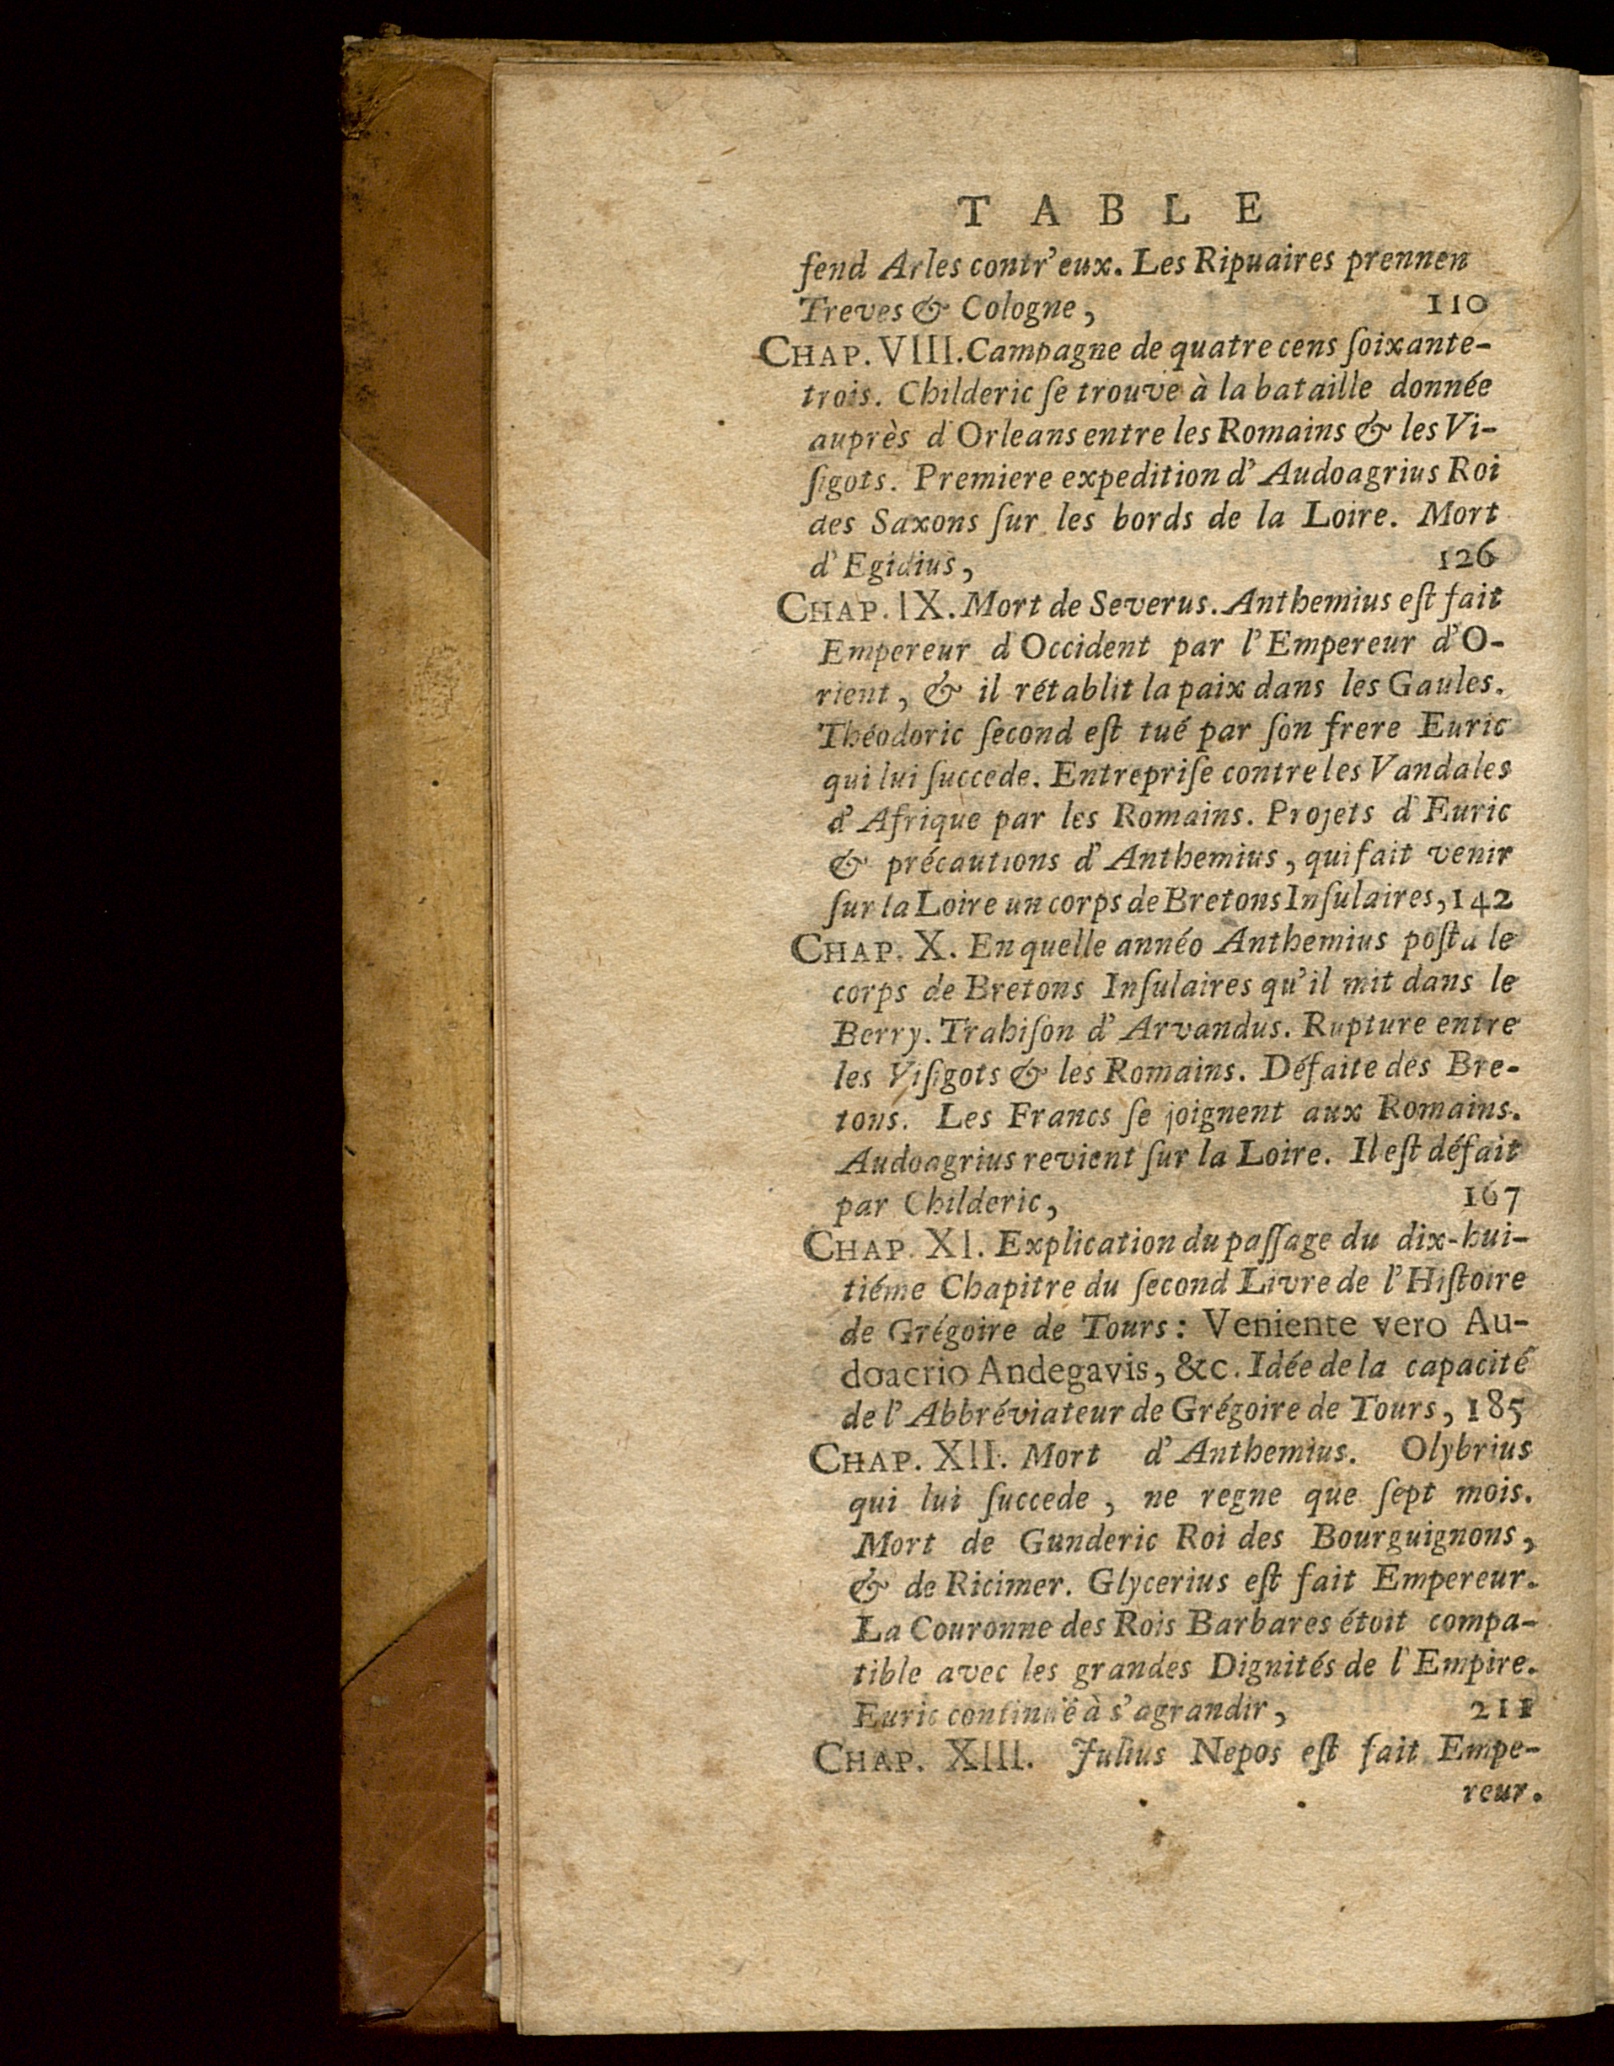 TABLE
fend Arles contr'eux. Les Ripuaires prennen
Treves & Cologne, 110
CHAP. VIII. Campagne de quatre cens ſoixante-
trois. Childeric ſe trouve à la bataille donnée
auprès d'Orleans entre les Romains & les Vi-
ſigots. Premiere expedition d'Audoagrius Roi
des Saxons ſur les bords de la Loire. Mort
d'Egidius, 126
CHAP. IX. Mort de Severus. Anthemius eſt fait
Empereur d'Occident par l'Empereur d'O-
rient, & il rétablit la paix dans les Gaules.
Théodoric ſecond eſt tué par ſon frere Euric
qui lui ſuccede. Entrepriſe contre les Vandales
d'Afrique par les Romains. Projets d'Euric
& précautions d'Anthemius, qui fait venir
ſur la Loire un corps de Bretons Inſulaires, 142
CHAP. X. En quelle annéo Anthemius poſta le
corps de Bretons Inſulaires qu'il mit dans le
Berry. Trahiſon d'Arvandus. Rupture entre
les Viſigots & les Romains. Défaite des Bre-
tons. Les Francs ſe joignent aux Romains.
Audoagrius revient ſur la Loire. Il eſt défait
par Childeric, 167
CHAP. XI. Explication du paſſage du dix-hui-
tiéme Chapitre du ſecond Livre de l'Hiſtoire
de Grégoire de Tours: Veniente vero Au-
doacrio Andegavis, &c. Idée de la capacité
de l'Abbréviateur de Grégoire de Tours, 185
CHAP. XII. Mort d'Anthemius. Olybrius
qui lui ſuccede, ne regne que ſept mois.
Mort de Gunderic Roi des Bourguignons,
& de Ricimer. Glycerius eſt fait Empereur.
La Couronne des Rois Barbares étoit compa-
tible avec les grandes Dignités de l'Empire.
Euric continuë à s'agrandir, 211
CHAP. XIII. Julius Nepos eſt fait Empe-
reur.